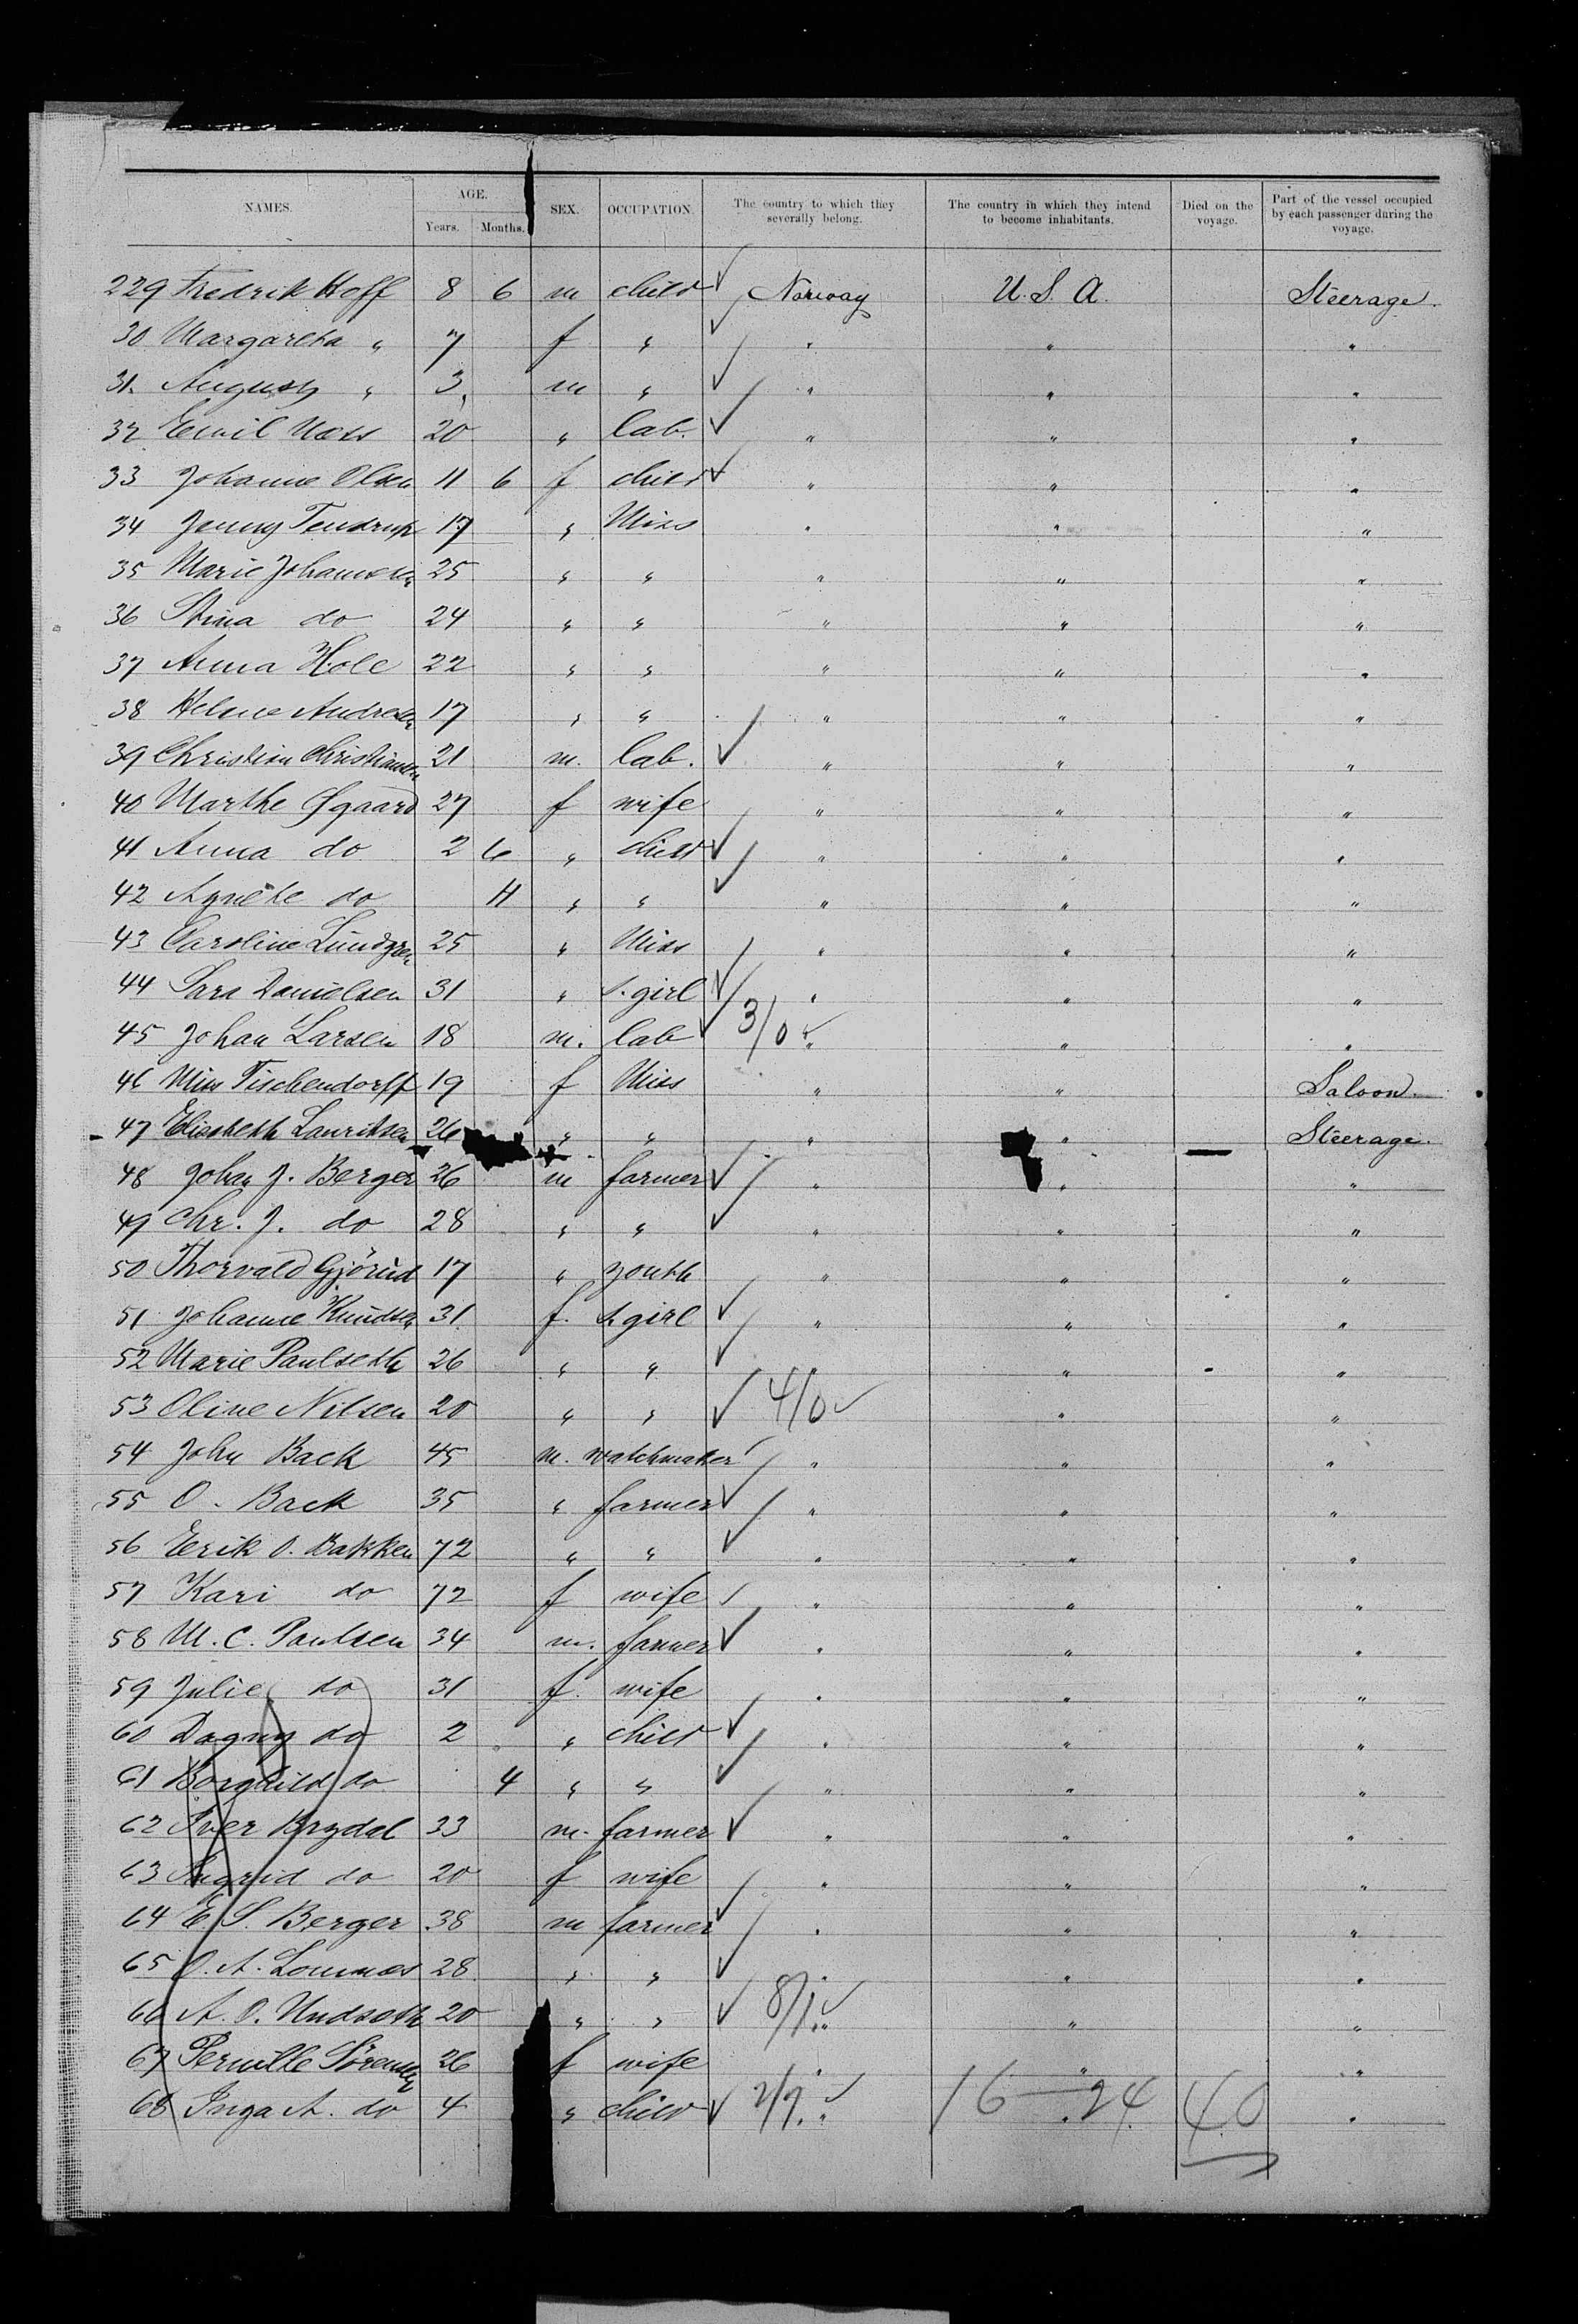 NAMES. AGE. Years. Months. SEX. OCCUPATION. The country to which they severally belong. The country in which they intend to become inhabitants. Died on the voyage. Part of the vessel occupied by each passenger during the voyage.
229 Fredrik Hoff 8 6 m child ✓ Norway U.S.A. Steerage.
30 Margaretha " 7 f " ✓ " " "
31. August " 3 m " ✓ " " "
32 Emil Næss 20 " lab. ✓ " " "
33 Johanne Olsen 11 6 f child ✓ " " "
34 Jenny Tendrup 17 " Miss " " "
35 Marie Johannesen 25 " " " " "
36 Stina do 24 " " " " "
37 Anna Hole 22 " " " " "
38 Helene Andresen 17 " " " " "
39 Christian Christiansen 21 m. lab. ✓ " " "
40 Marthe Øgaard 27 f wife " " "
41 Anna do 2 6 " child ✓ " " "
42 Agnethe do 11 " " ✓ " " "
43 Caroline Lundgren 25 " Miss " " "
44 Sara Danielsen 31 " s. girl ✓ " " "
45 Johan Larsen 18 m. lab ✓ 3/0 ✓ " " "
46 Miss Tischendorff 19 f Miss " " Saloon.
47 Elisabeth Lauritsen 26 " " " " Steerage.
48 Johan J. Berger 26 m farmer ✓ " " "
49 Chr. J. do 28 " " ✓ " " "
50 Thorvald Gjörud 17 " youth " " "
51 Johanne Knudsen 31 f. s. girl ✓ " " "
52 Marie Paulseth 26 " " ✓ " " "
53 Oline Nilsen 20 " " ✓ 4/0 ✓ " "
54 John Back 45 m. watchmaker ✓ " " "
55 O. Back 35 " farmer ✓ " " "
56 Erik O. Bakken 72 " " ✓ " " "
57 Kari do 72 f wife ✓ " " "
58 M. C. Paulsen 34 m. farmer ✓ " " "
59 Julie do 31 f. wife " " "
60 Dagny do 2 " child ✓ " " "
61 Borghild do 4 " " ✓ " " "
62 Iver Brydal 33 m. farmer ✓ " " "
63 Ingrid do 20 f wife " " "
64 E. S. Berger 38 m farmer ✓ " " "
65 O. A. 28 " " ✓ " " "
66 A. O. Undseth 20 " " ✓ 8/1 ✓ " " "
67 Pernille Sörensen 26 f wife " " "
68 Inga A. do 4 " child ✓ 2/2 ✓ " 16 — 24 40 "